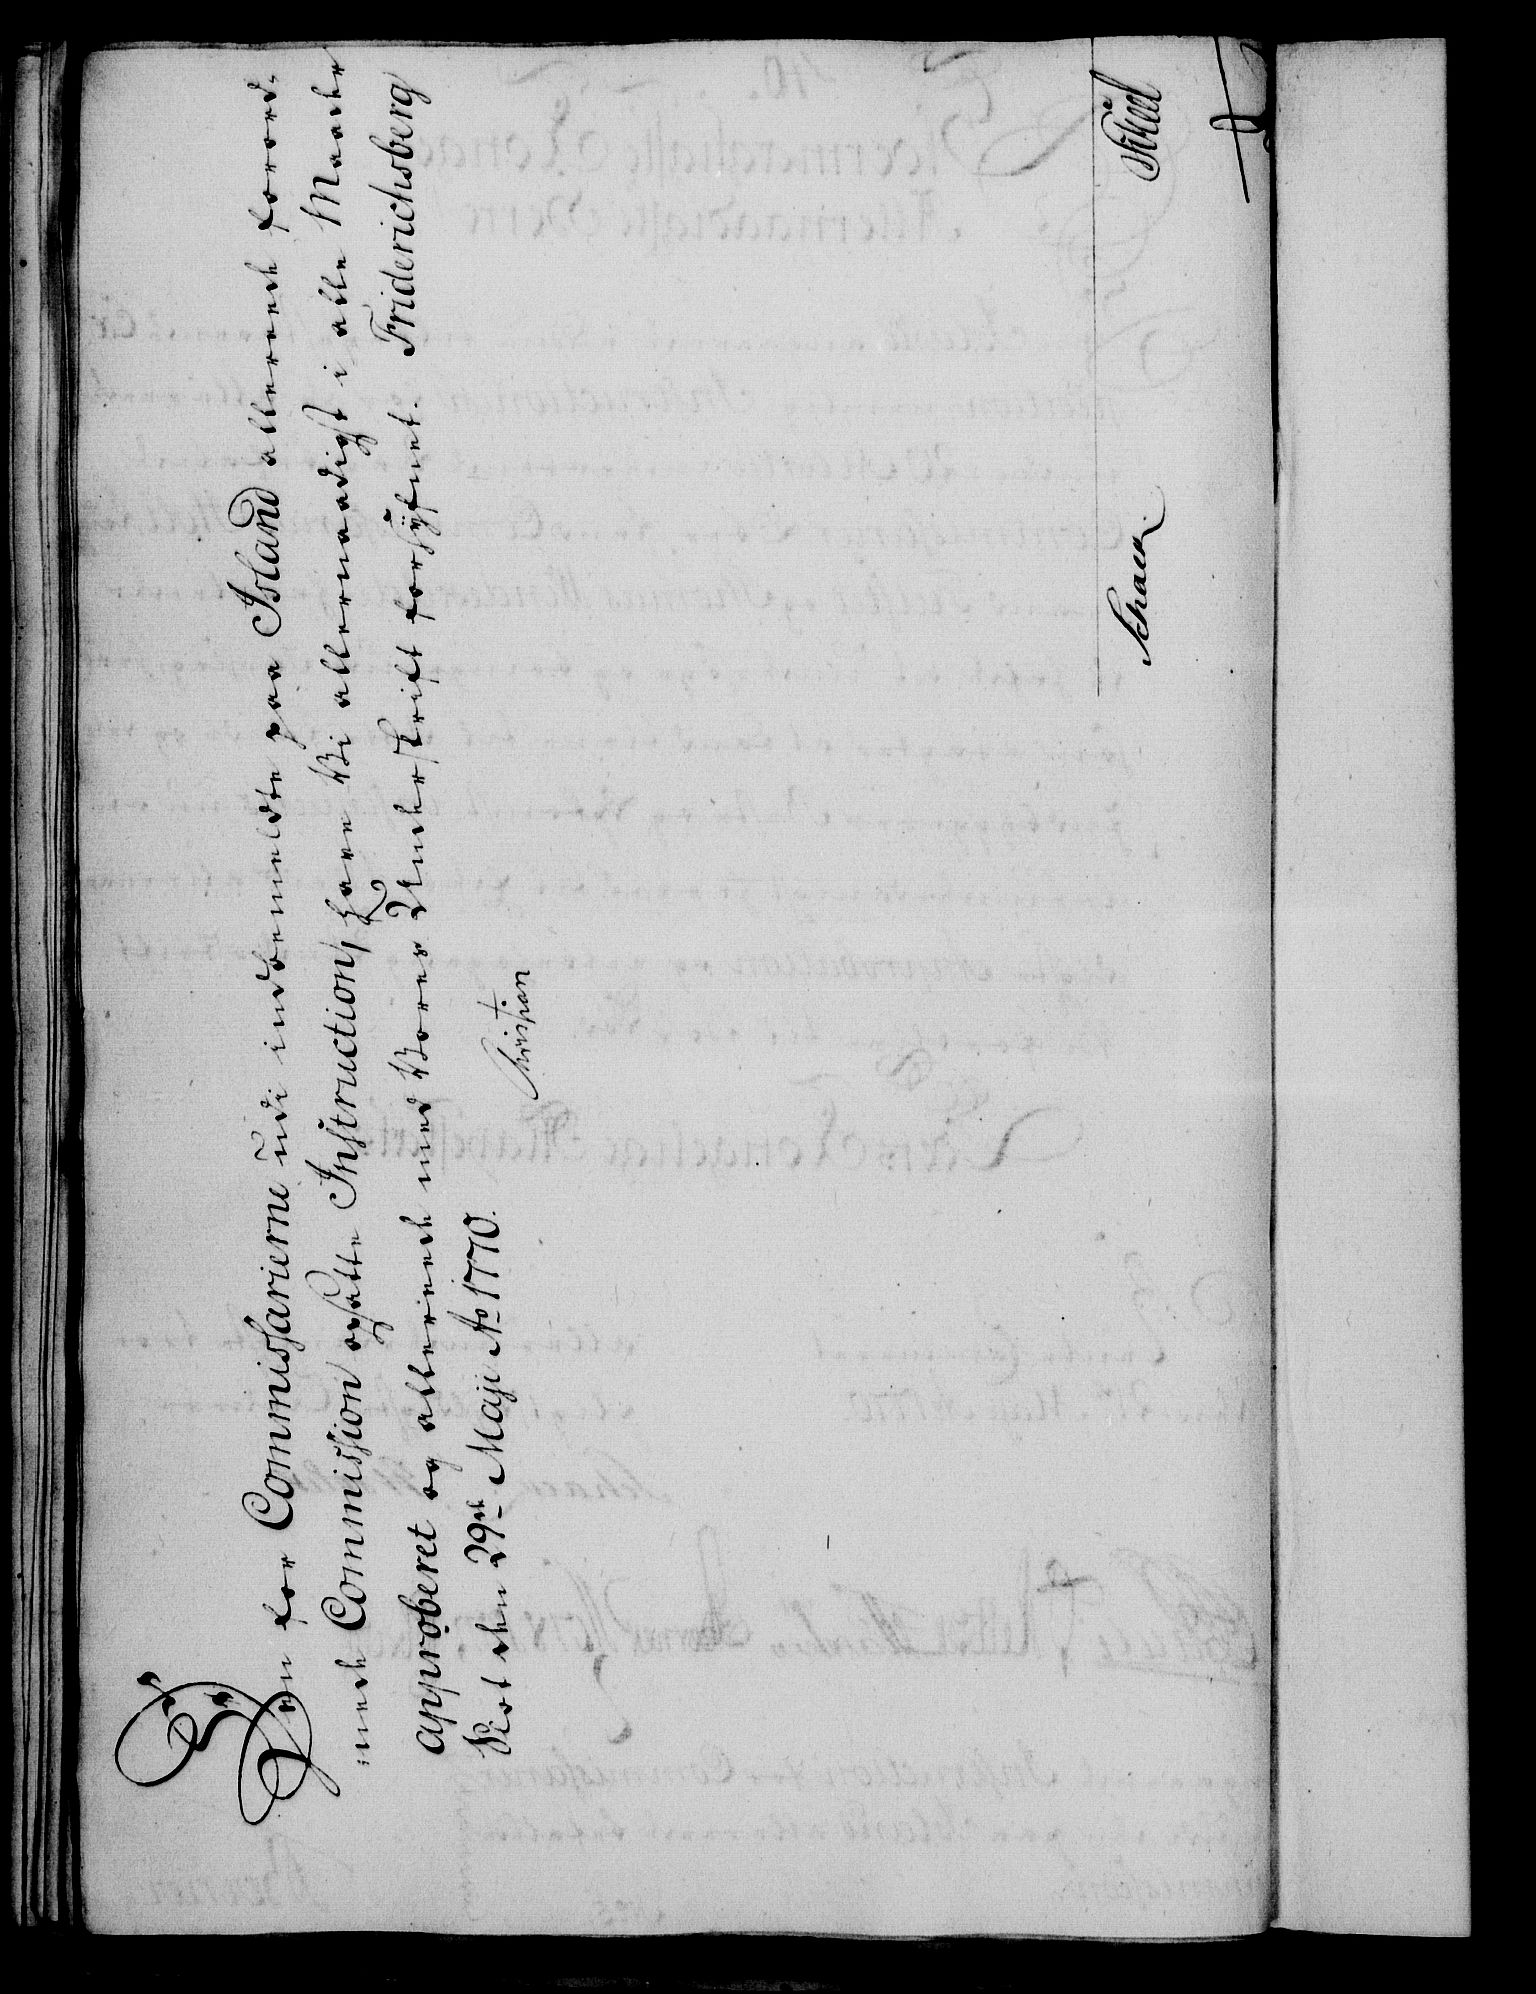 Den for Commissarierne udi indbemeldte paa Island allerede forord-
nede Commission opsatte Instruction, have Vi allernaadigst i alle Maader
approberet og allerede med Vores Underskrift forsÿfnet. Friderichsberg
Slot den 29de Maji Ao 1770.
Christian
Schack.